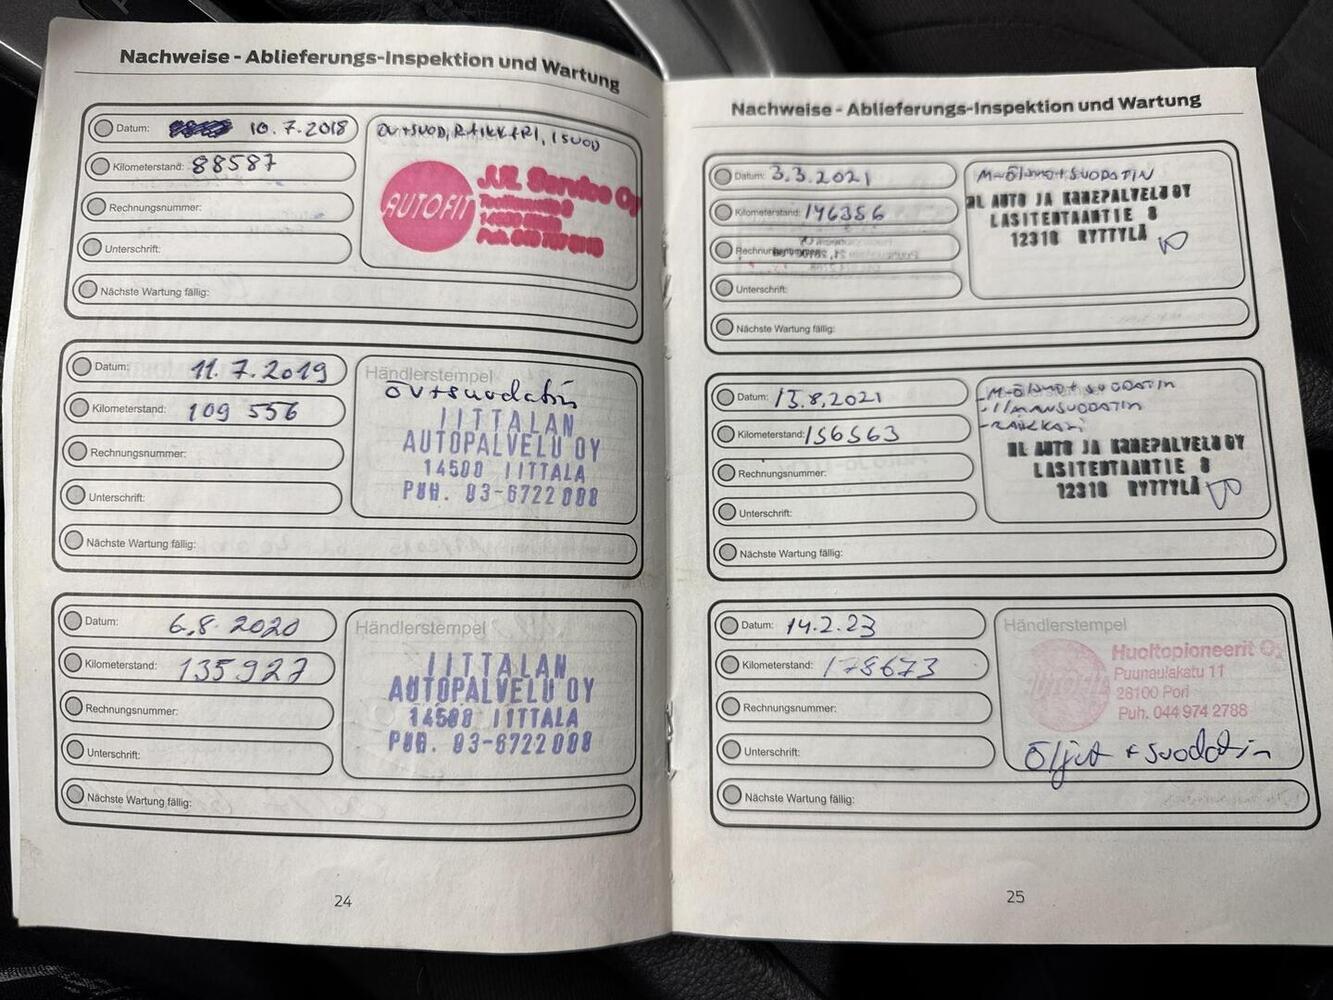 Nachweise - Ablieferungs-Inspektion und Wartung
Datum: 10.7.2018
Kilometerstand: 88587
Rechnungsnummer:
Unterschrift:
Nächste Wartung fällig:
ÖV+SUOD, RAIKKERI, ISUOD
AUTOFIT
J.R. Service Oy
Datum: 11.7.2019
Kilometerstand: 109 556
Rechnungsnummer:
Unterschrift:
Nächste Wartung fällig:
Händlerstempel
öv+suodatin
IITTALAN
AUTOPALVELU OY
14500 IITTALA
PUH. 03-6722008
Datum: 6.8.2020
Kilometerstand: 135927
Rechnungsnummer:
Unterschrift:
Nächste Wartung fällig:
Händlerstempel
IITTALAN
AUTOPALVELU OY
14500 IITTALA
PUH. 03-6722008
24
Nachweise - Ablieferungs-Inspektion und Wartung
Datum: 3.3.2021
Kilometerstand: 146356
Rechnungsnummer:
Unterschrift:
Nächste Wartung fällig:
M-öljyt+SUODATIN
AUTO JA KONEPALVELU OY
LASITEHTAANTIE 8
12310 RYTTYLÄ
Datum: 13.8.2021
Kilometerstand: 156563
Rechnungsnummer:
Unterschrift:
Nächste Wartung fällig:
-M-öljyt+ SUODATIN
-ILMANSUODATIN
AUTO JA KONEPALVELU OY
LASITEHTAANTIE 8
12310 RYTTYLÄ
Datum: 14.2.23
Kilometerstand: 178673
Rechnungsnummer:
Unterschrift:
Nächste Wartung fällig:
Händlerstempel
AUTOFIT
Huoltopioneerit Oy
Puunaulakatu 11
28100 Pori
Puh. 044 974 2788
Öljyt + suodatin
25